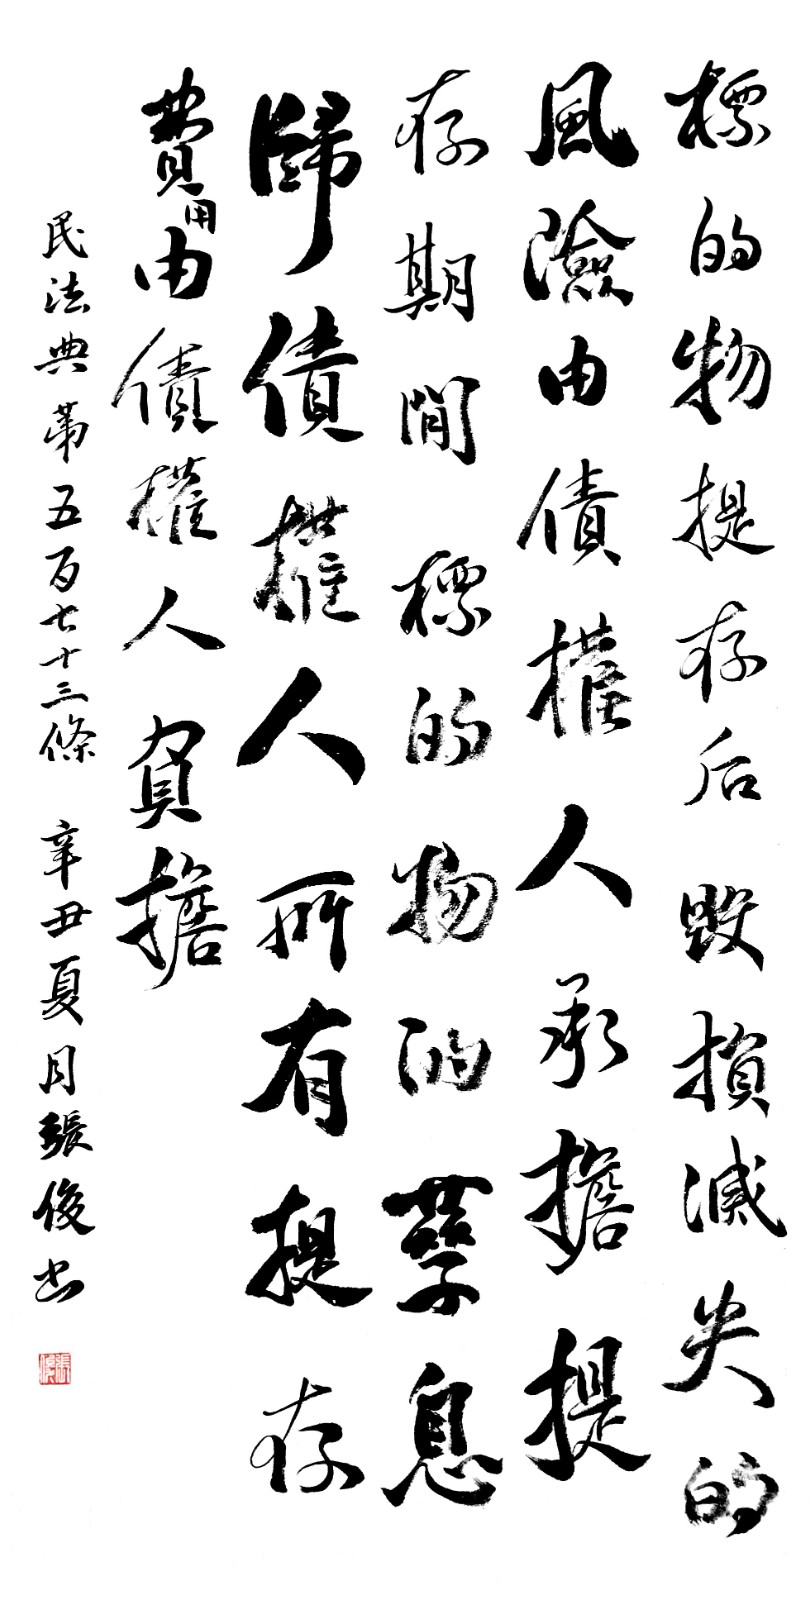 標的物提存后毀損減失的
風險由債權人承擔提
存期間標的物的孳息
歸債權人所有提存
費用由債權人負擔
民法典第五百七十三條 辛丑夏月張俊書
張俊